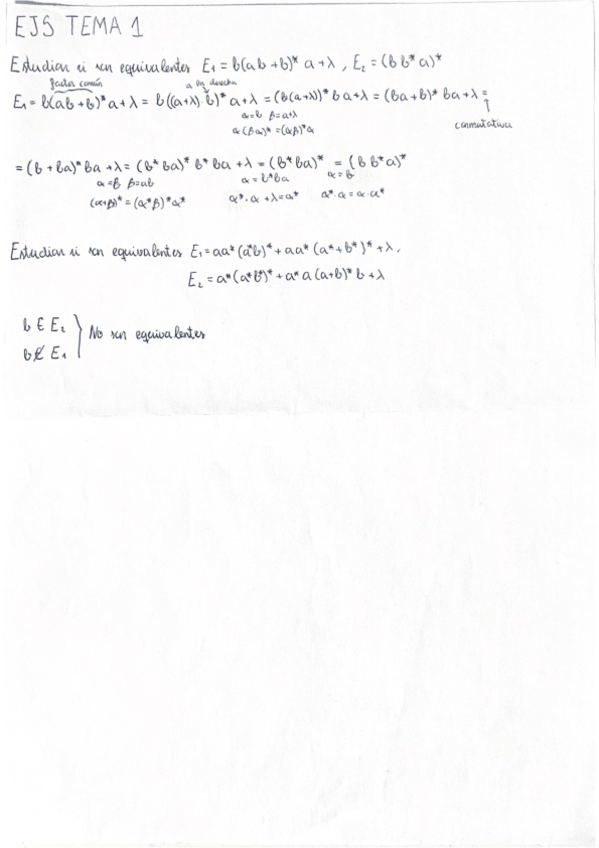 EJS TEMA 1
Estudiar si son equivalentes E₁ = b(ab + b)* a + λ , E₂ = (b b* a)*
factor común a la derecha
E₁ = b(ab + b)* a + λ = b((a+λ) b)* a + λ = (b(a+λ))* b a + λ = (ba + b)* ba + λ =
α=b β=a+λ
α(βα)* = (αβ)*α
conmutativa
= (b + ba)* ba + λ = (b* ba)* b* ba + λ = (b* ba)* = (b b* a)*
α=b β=ab α = b*ba α = b
(α+β)* = (α*β)*α* α*·α + λ = α* α*·α = α·α*
Estudiar si son equivalentes E₁ = aa* (a*b)* + aa* (a* + b*)* + λ ,
E₂ = a* (a*b*)* + a* a (a+b)* b + λ
b ∈ E₂
b ∉ E₁
No son equivalentes